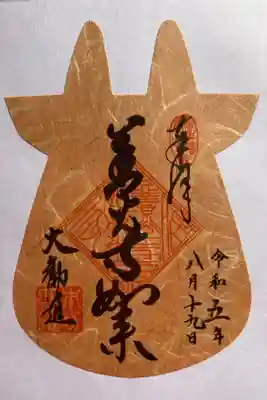 奉拝
令和五年
八月十九日
善光寺如来
大勸進